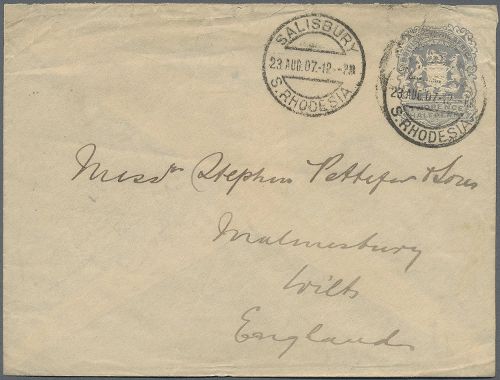 SALISBURY
23 AUG. 07.-12--PM
S. RHODESIA
23 AUG. 07.-12
S. RHODESIA
TWOPENCE
HALFPENNY
Messrs Stephen Pettifer & Sons
Malmesbury
Wilts
England